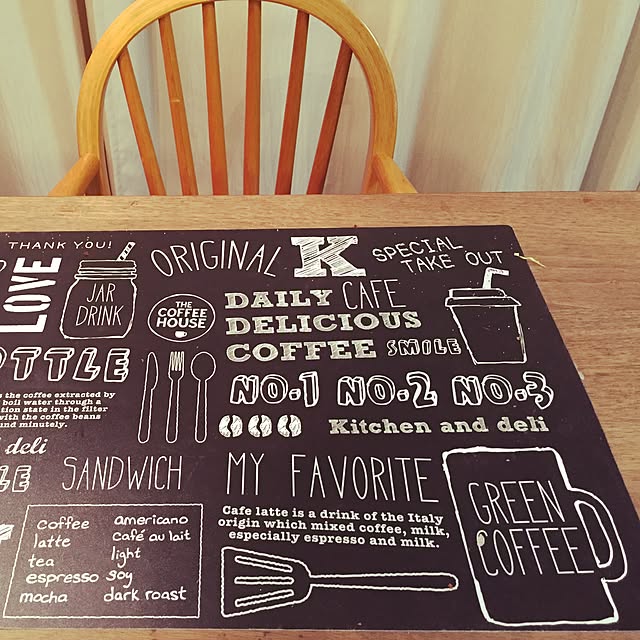 THANK YOU!
ORIGINAL K SPECIAL
TAKE OUT
LOVE
JAR
DRINK
THE
COFFEE
HOUSE
DAILY CAFE
DELICIOUS
COFFEE SMILE
NO.1 NO.2 NO.3
Kitchen and deli
the coffee extracted by
boil water through a
state in the filter
with the coffee beans
minutely.
deli
SANDWICH
MY FAVORITE
Cafe latte is a drink of the Italy
origin which mixed coffee, milk,
especially espresso and milk.
GREEN
COFFEE
coffee americano
latte café au lait
tea light
espresso soy
mocha dark roast